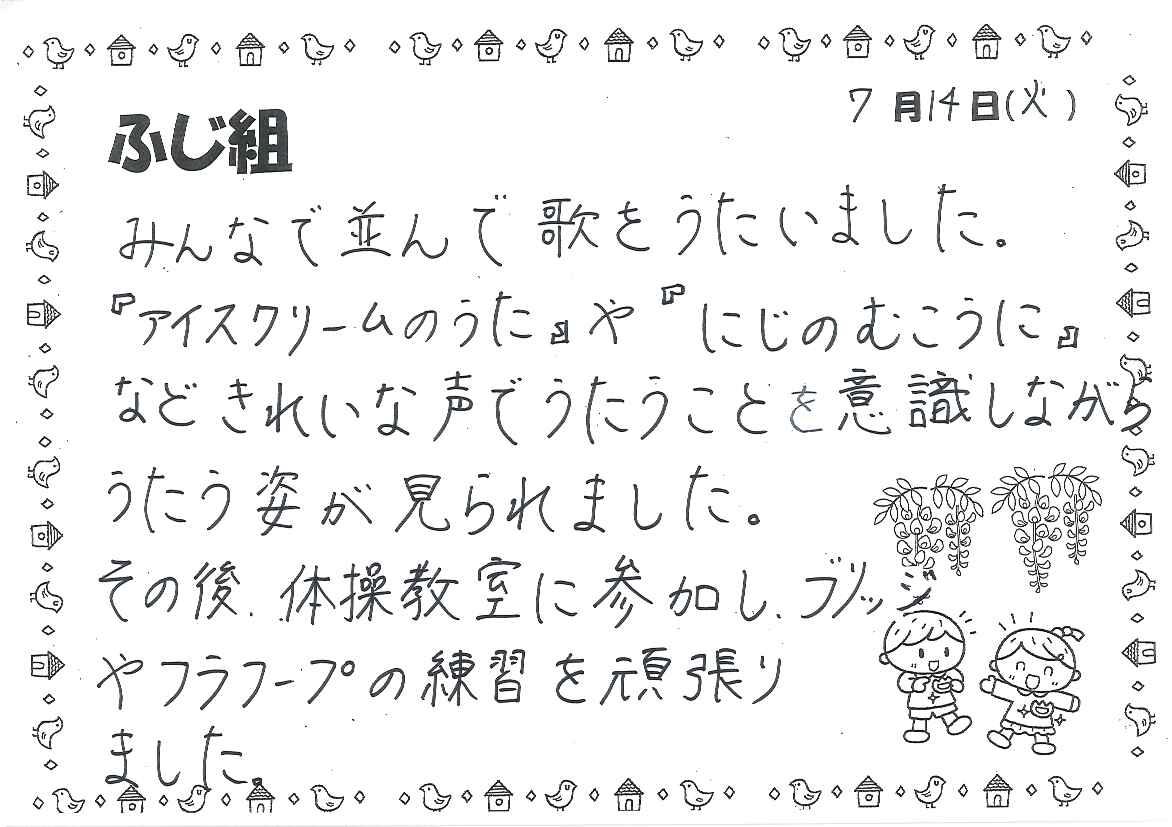 7月14日(火)
ふじ組
みんなで並んで歌をうたいました。
『アイスクリームのうた』や『にじのむこうに』
などきれいな声でうたうことを意識しながら
うたう姿が見られました。
その後、体操教室に参加し、ブリッジ
やフラフープの練習を頑張り
ました。